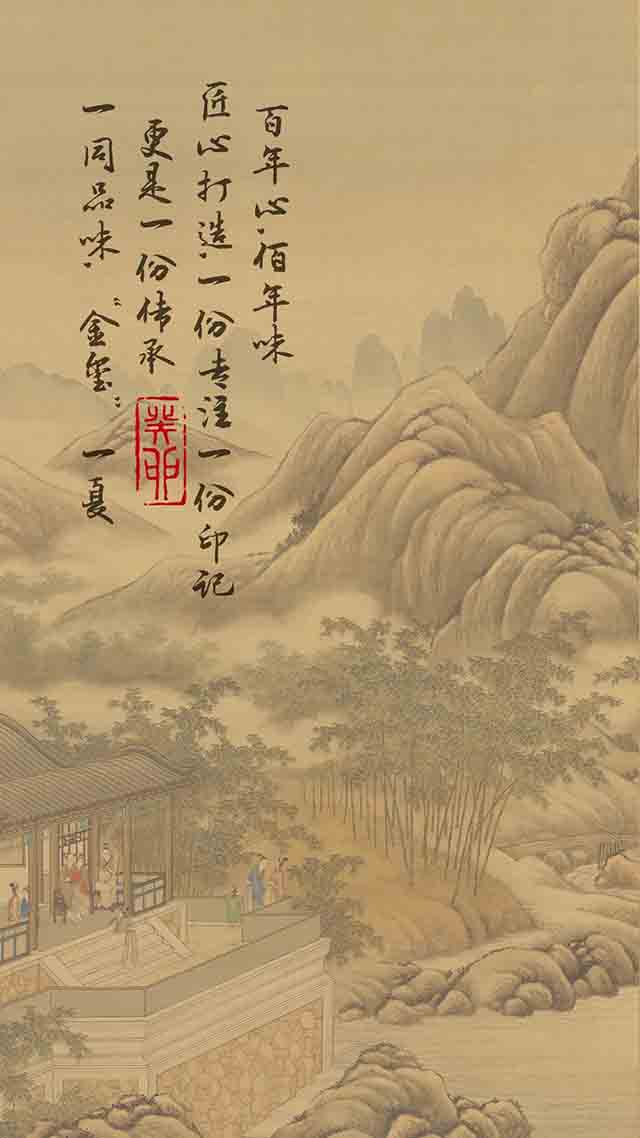 百年心,佰年味
匠心打造,一份专注一份印记
更是一份传承
癸卯
一同品味,“金玺”一夏